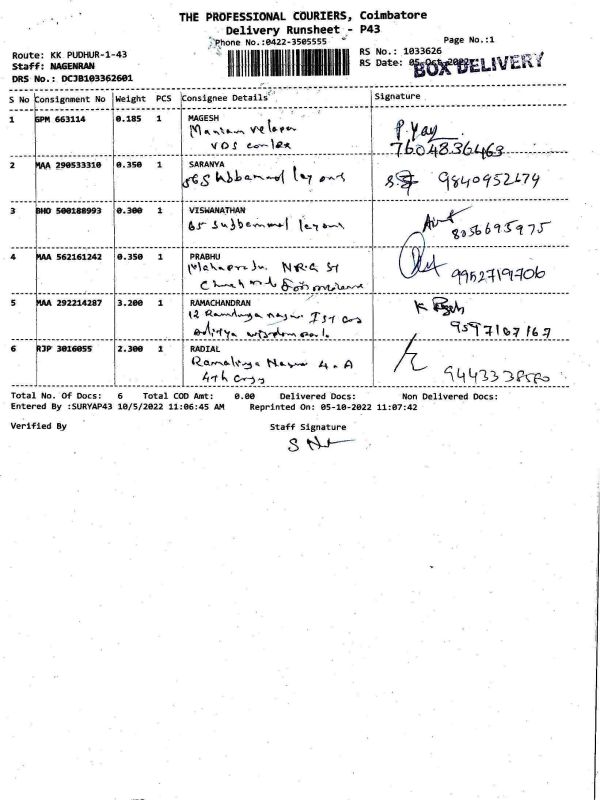 THE PROFESSIONAL COURIERS, Coimbatore
Delivery Runsheet - P43
Phone No.:0422-3505555
Page No.:1
Route: KK PUDHUR-1-43
RS No.: 1033626
Staff: NAGENRAN
RS Date: 05 Oct 2022
BOX DELIVERY
DRS No.: DCJB103362601
S No Consignment No Weight PCS Consignee Details Signature
1 GPM 663114 0.185 1 MAGESH
VDS
7604836463
2 MAA 290533310 0.350 1 SARANYA
9840952479
3 BHO 500188993 0.300 1 VISWANATHAN
65
8056695975
4 MAA 562161242 0.350 1 PRABHU
NRG St
9952719706
5 MAA 292214287 3.200 1 RAMACHANDRAN
12 nagar Ist
Aditya
9597167167
6 RJP 3016055 2.300 1 RADIAL
Ramalinga Nagar 4.A
4th Cross
9443338580
Total No. Of Docs: 6 Total COD Amt: 0.00 Delivered Docs: Non Delivered Docs:
Entered By :SURYAP43 10/5/2022 11:06:45 AM Reprinted On: 05-10-2022 11:07:42
Verified By Staff Signature